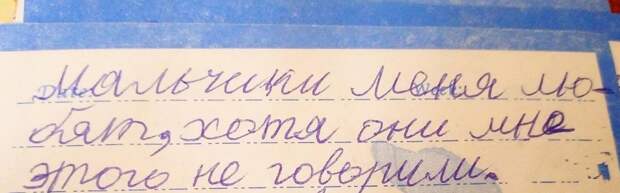 Мальчики меня лю-
бят, хотя они мне
этого не говорили.